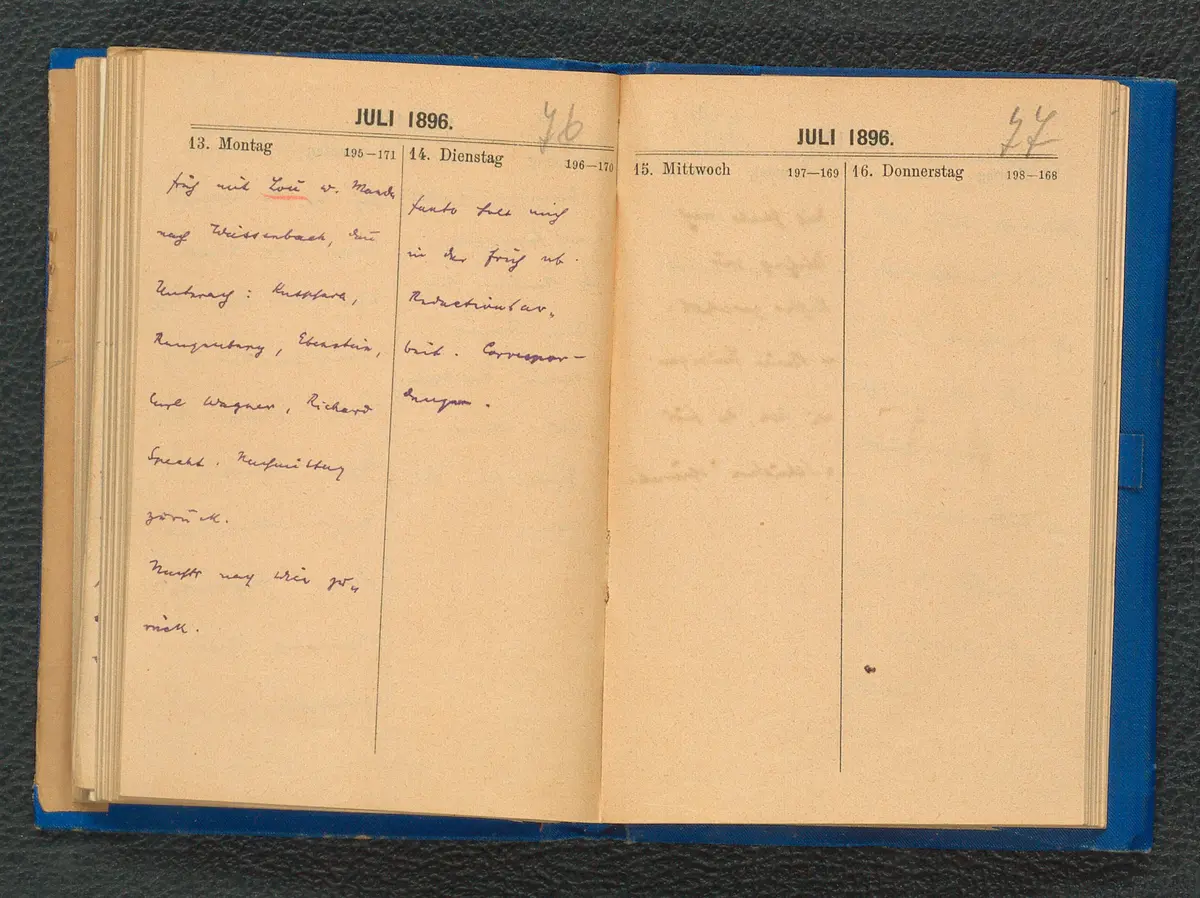 JULI 1896.
76
13. Montag
195—171
früh mit Lou v. Mondsee
nach Weissenbach, dann
Unterach: Ruttfara,
Rangenberg, Ebenstein,
Carl Wagner, Richard
Specht. Nachmittag
zurück.
Nachts nach Wien zu„
rück.
14. Dienstag
196—170
Fanto holt mich
in der Früh ab.
Redactionsar„
beit. Correspon-
denzen.
JULI 1896.
77
15. Mittwoch
197—169
16. Donnerstag
198—168